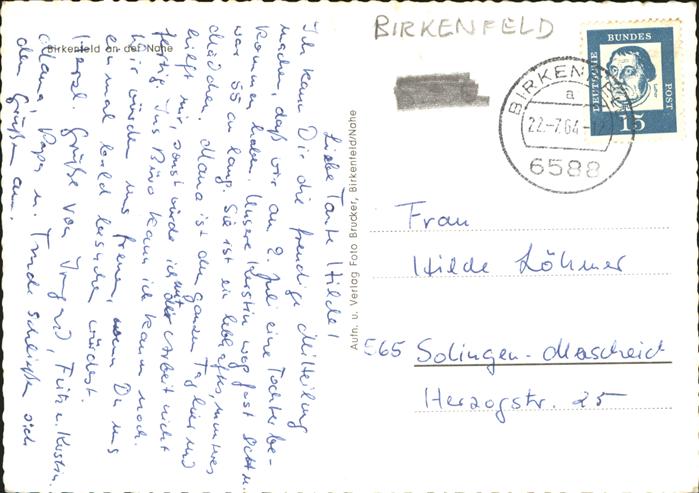 BIRKENFELD
Birkenfeld an der Nahe
Liebe Tante Hilde!
Ich kann Dir die freudige Mitteilung
machen, daß wir am 2. Juli eine Tochter be-
kommen haben. Unsere Kerstin wog fast 8 Pfd u.
war 55 cm lang. Sie ist ein lebhaftes, munteres
Mädchen. Mama ist den ganzen Tag hier und
hilft mir, sonst würde ich mit der Arbeit nicht
fertig. Ins Büro kann ich kaum noch.
Wir würden uns freuen, wenn Du uns
einmal bald besuchen würdest.
Herzl. Grüße von Irmgard, Fritz u. Kerstin.
Mama, Papa u. Trude schließen sich
den Grüßen an.
Aufn. u. Verlag Foto Brucker, Birkenfeld/Nahe
DEUTSCHE BUNDES POST
15
BIRKEN
a
22.-7.64-12
6588
Frau
Hilde Löhmer
565 Solingen-Merscheid
Herzogstr. 25